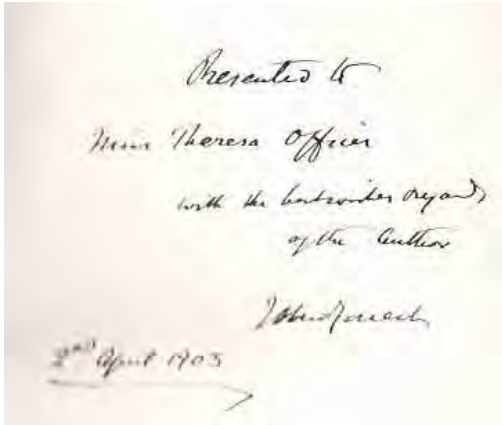 Presented to
Miss Theresa Officer
with the best wishes & regards
of the Author
John Forrest
2nd April 1903